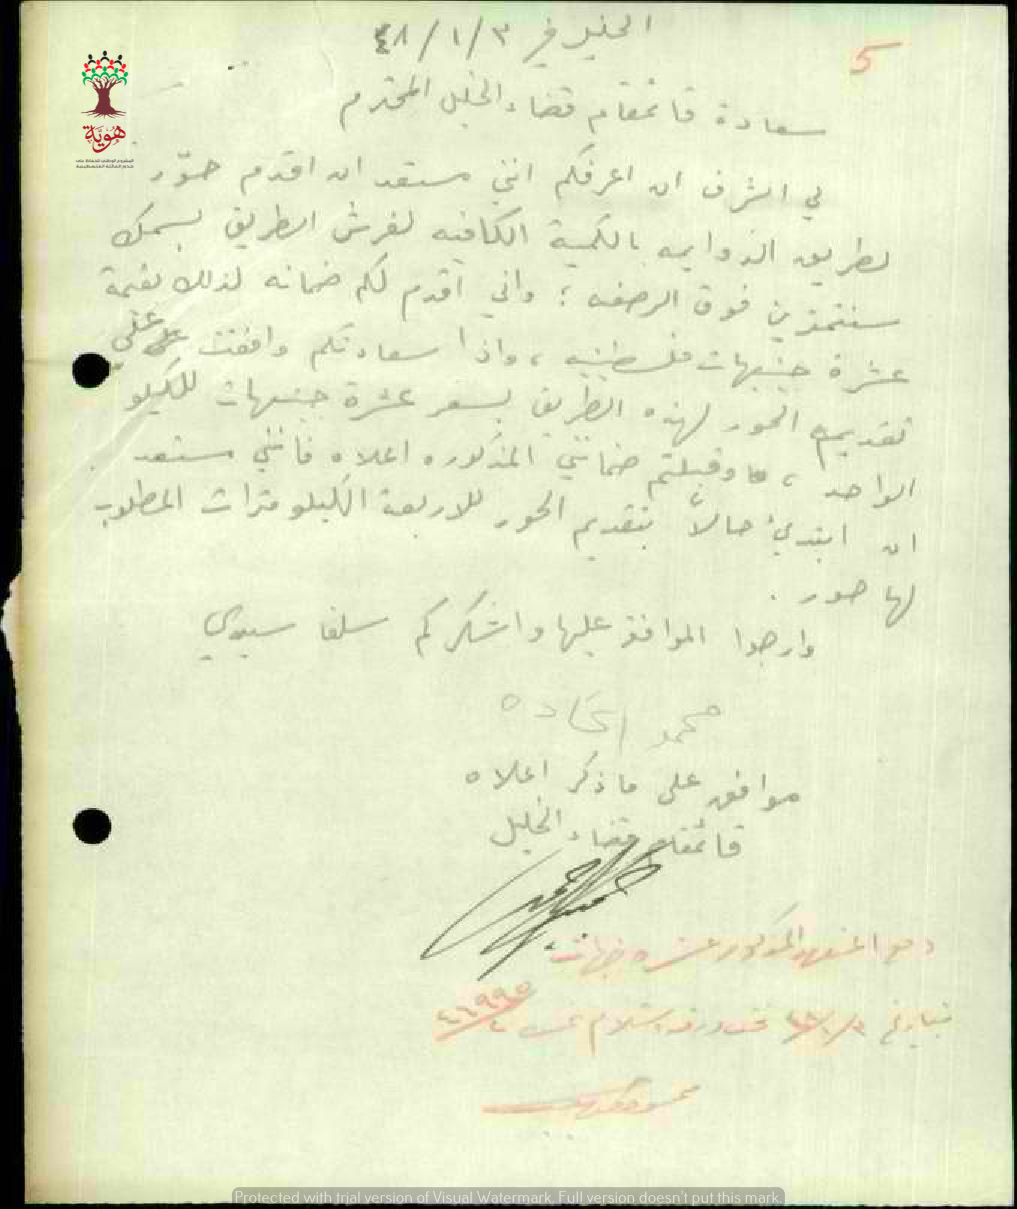 الخليل في ٣/١/٤٨
5
سعادة قائمقام قضاء الخليل المحترم
لي الشرف ان اعرفكم انني مستعد ان اقدم حوّر
لطريق الدوايمه بالكمية الكافيه لفرش الطريق بسمك
سنتمترين فوق الرصفه ؛ واني اقدم لكم ضمانه لذلك بقيمة
عشرة جنيهات فلسطينيه ، واذا سعادتكم وافقت على
تقديم الحور لهذه الطريق بسعر عشرة جنيهات للكيلو
الواحد ، وقبلتم ضمانتي المذكوره اعلاه فانني مستعد
ان ابتديء حالاً بتقديم الحور للاربعة الكيلومترات المطلوب
لها حور .
وارجوا الموافقه عليها واشكركم سلفا سيدي
محمد
موافق على ما ذكر اعلاه
قائمقام قضاء الخليل
دفع المتعهد المذكور عشره جنيهات
بتاريخ ٣/١/٤٨ تحت ورقة استلام نمرة ٤٦٩٩٥
هوية
Protected with trial version of Visual Watermark. Full version doesn't put this mark.